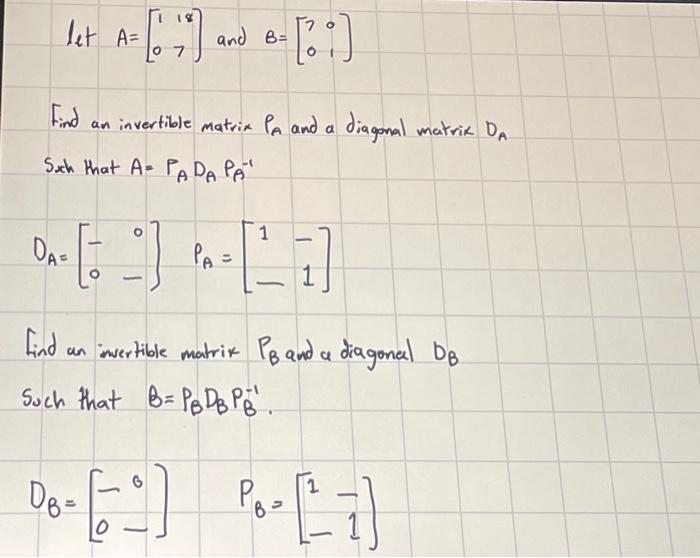 let A= [1 18 0 7] and B= [7 0 0 1]
Find an invertible matrix PA and a diagonal matrix DA
Such that A= PA DA PA⁻¹
DA= [_ 0 0 _] PA = [1 _ _ 1]
find an invertible matrix PB and a diagonal DB
Such that B= PB DB PB⁻¹.
DB= [_ 0 0 _] PB= [1 _ _ 1]